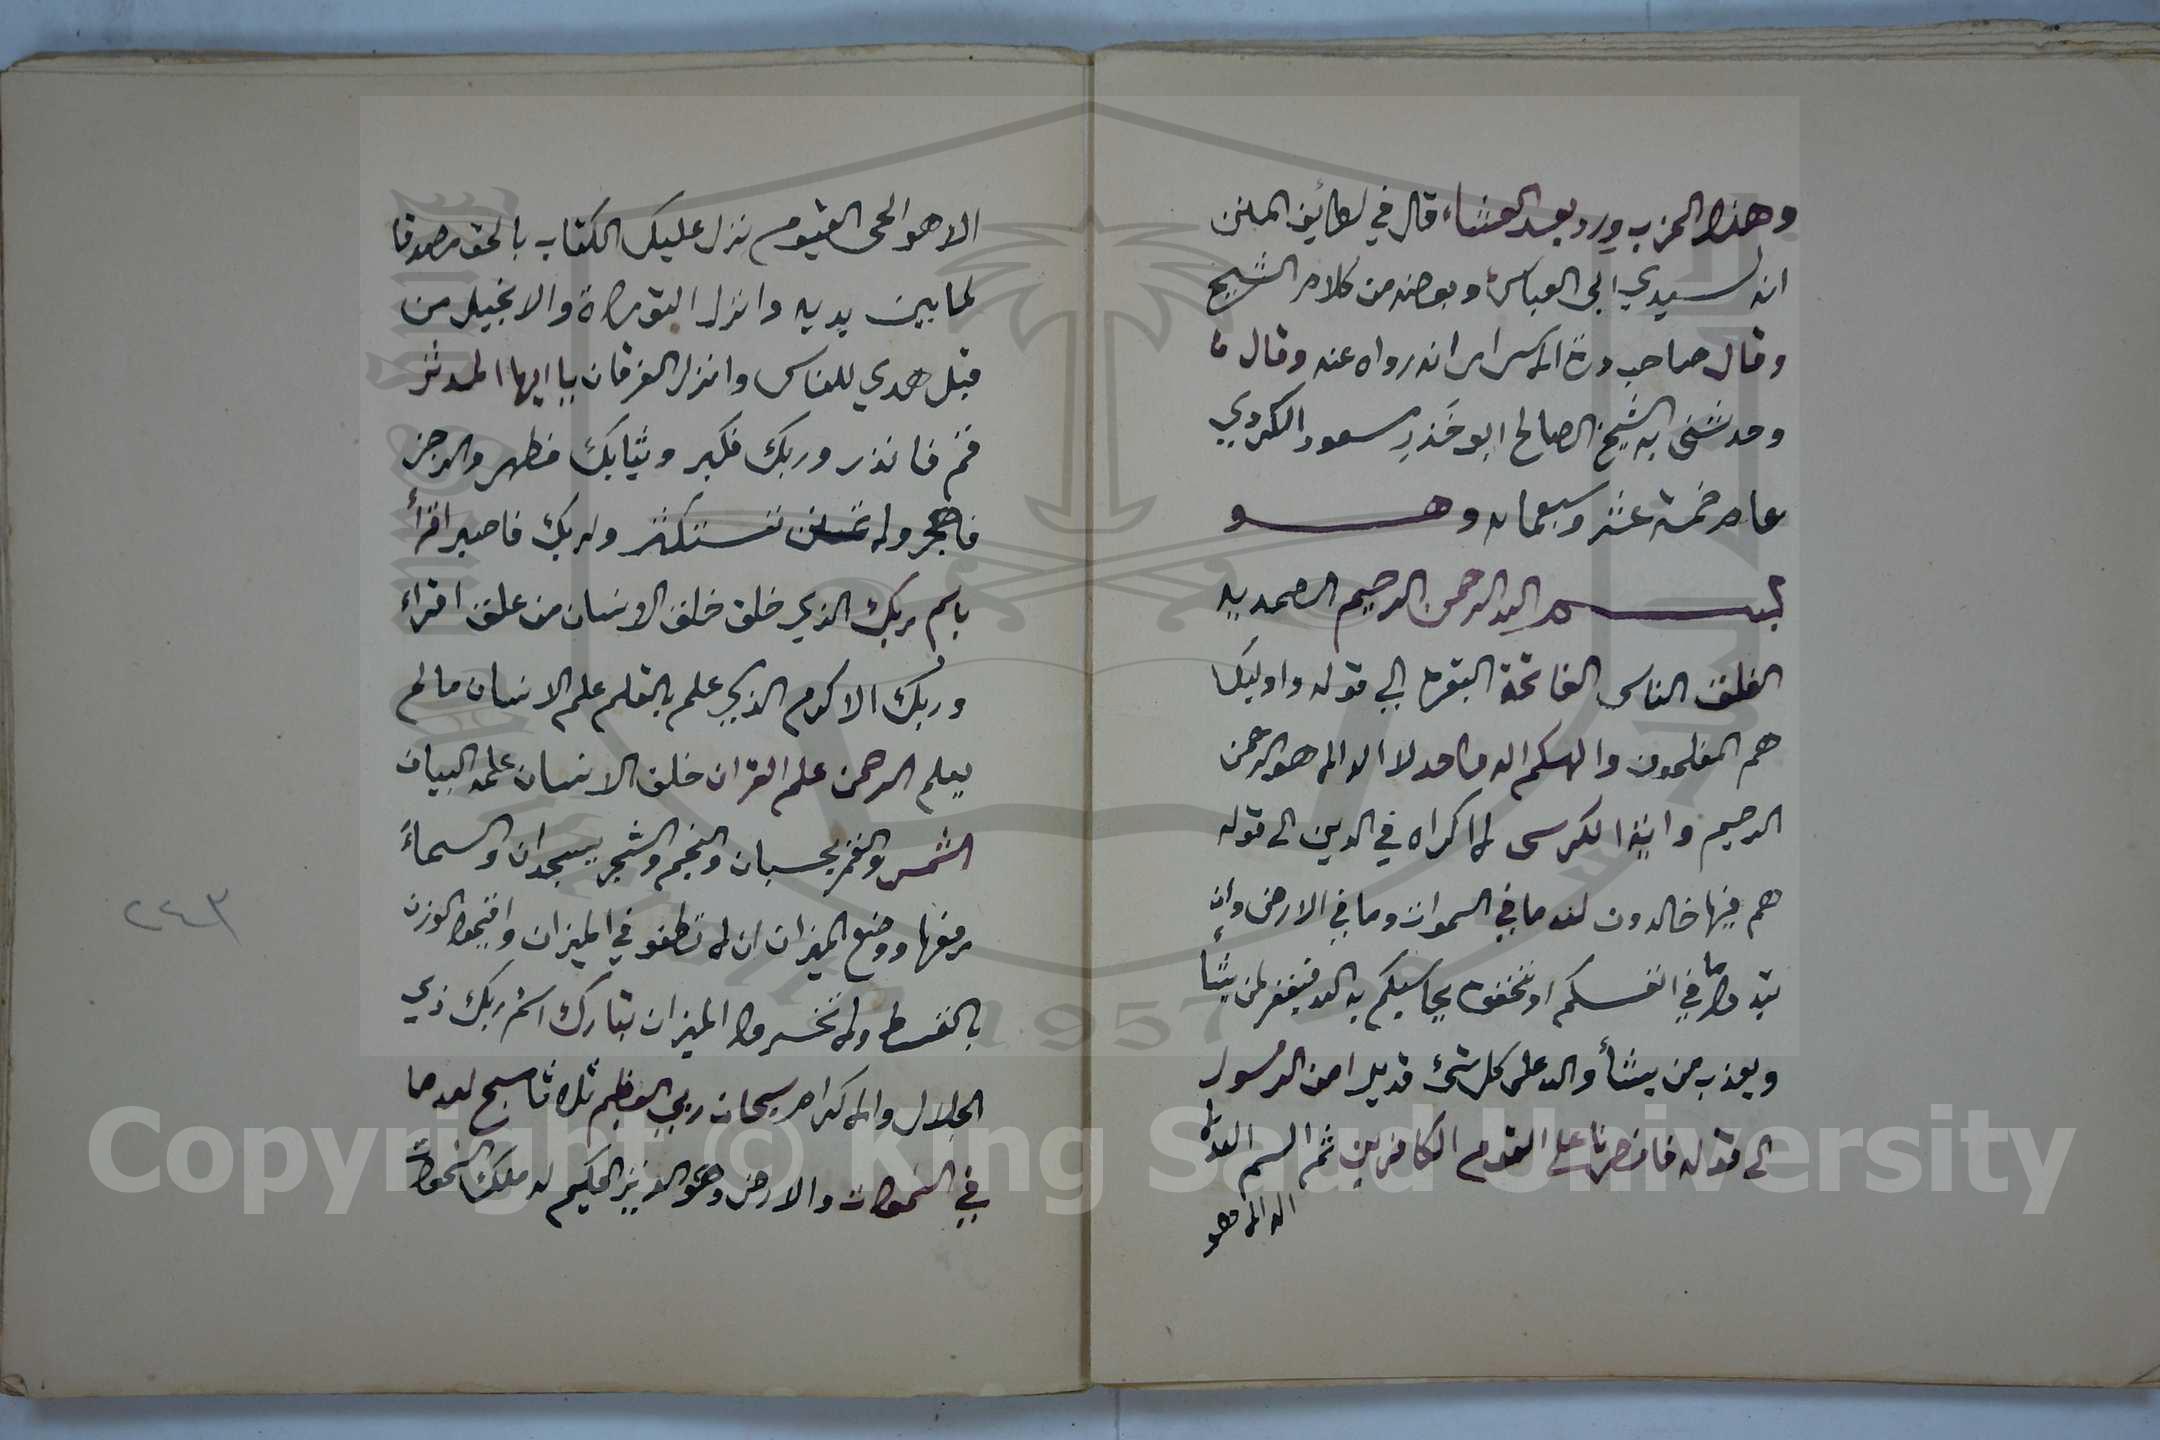 وهذا الحزب ورد بعد العشاء قال في لطائف المنن
انه لسيدي ابي العباس وبعضه من كلام الشيخ
وقال صاحب درة الاسرار انه رواه عنه وقال
وحدثني به الشيخ الصالح ابو مسعود الكردي
عام خمسة عشر وسبعمايه وهو
بسم الله الرحمن الرحيم الصمديه
الفلق الناس الفاتحة البقره الي قوله واوليك
هم المفلحون والهكم اله واحد لا اله الا هو الرحمن
الرحيم واية الكرسي لا اكراه في الدين الى قوله
هم فيها خالدون لله ما في السموات وما في الارض وان
تبدوا ما في انفسكم او تخفوه يحاسبكم به الله فيغفر لمن يشأ
ويعذب من يشأ والله على كل شئ قدير امن الرسول
الى قوله فانصرنا على القوم الكافرين ثم الم الله لا
اله الا هو
الا هو الحي القيوم نزل عليك الكتاب بالحق مصدقا
لما بين يديه وانزل التوراة والانجيل من
قبل هدي للناس وانزل الفرقان يا ايها المدثر
قم فانذر وربك فكبر وثيابك فطهر والرجز
فاهجر ولا تمنن تستكثر ولربك فاصبر اقرأ
باسم ربك الذي خلق خلق الانسان من علق اقراء
وربك الاكرم الذي علم بالقلم علم الانسان مالم
يعلم الرحمن علم القران خلق الانسان علمه البيان
الشمس والقمر بحسبان والنجم والشجر يسجدان والسماء
رفعها ووضع الميزان ان لا تطغو في الميزان واقيموا الوزن
بالقسط ولا تخسروا الميزان تبارك اسم ربك ذي
الجلال والاكرام سبحان ربي العظيم ثلاثا سبح لله ما
في السموات والارض وهو العزيز الحكيم له ملك السموات
٢٤٣
Copyright © King Saud University
1957